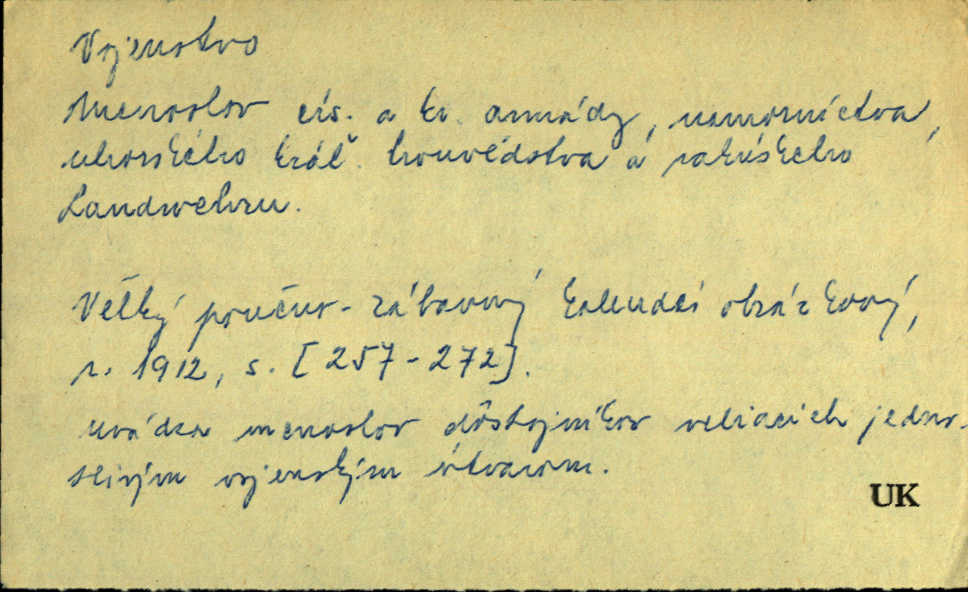 Vojenstvo
Menoslov cís. a kr. armády, námorníctva,
uhorského král. honvédstva a rakúskeho
Landwehru.
Veľký poučno-zábavný kalendár obrázkový,
r. 1912, s. [257-272].
Uvádza menoslov dôstojníkov veliacich jedno-
tlivým vojenským útvarom.
UK